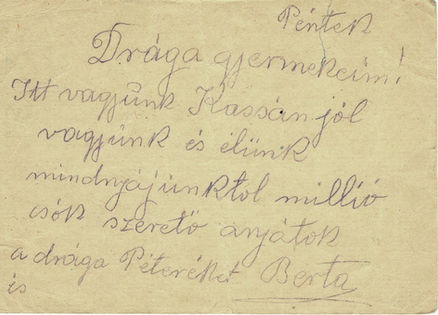 Péntek
Drága gyermekeim!
Itt vagyunk Kassán jól
vagyunk és élünk
mindnyájunktol millió
csók szerető anyátok
a drága Péteréket Berta
és